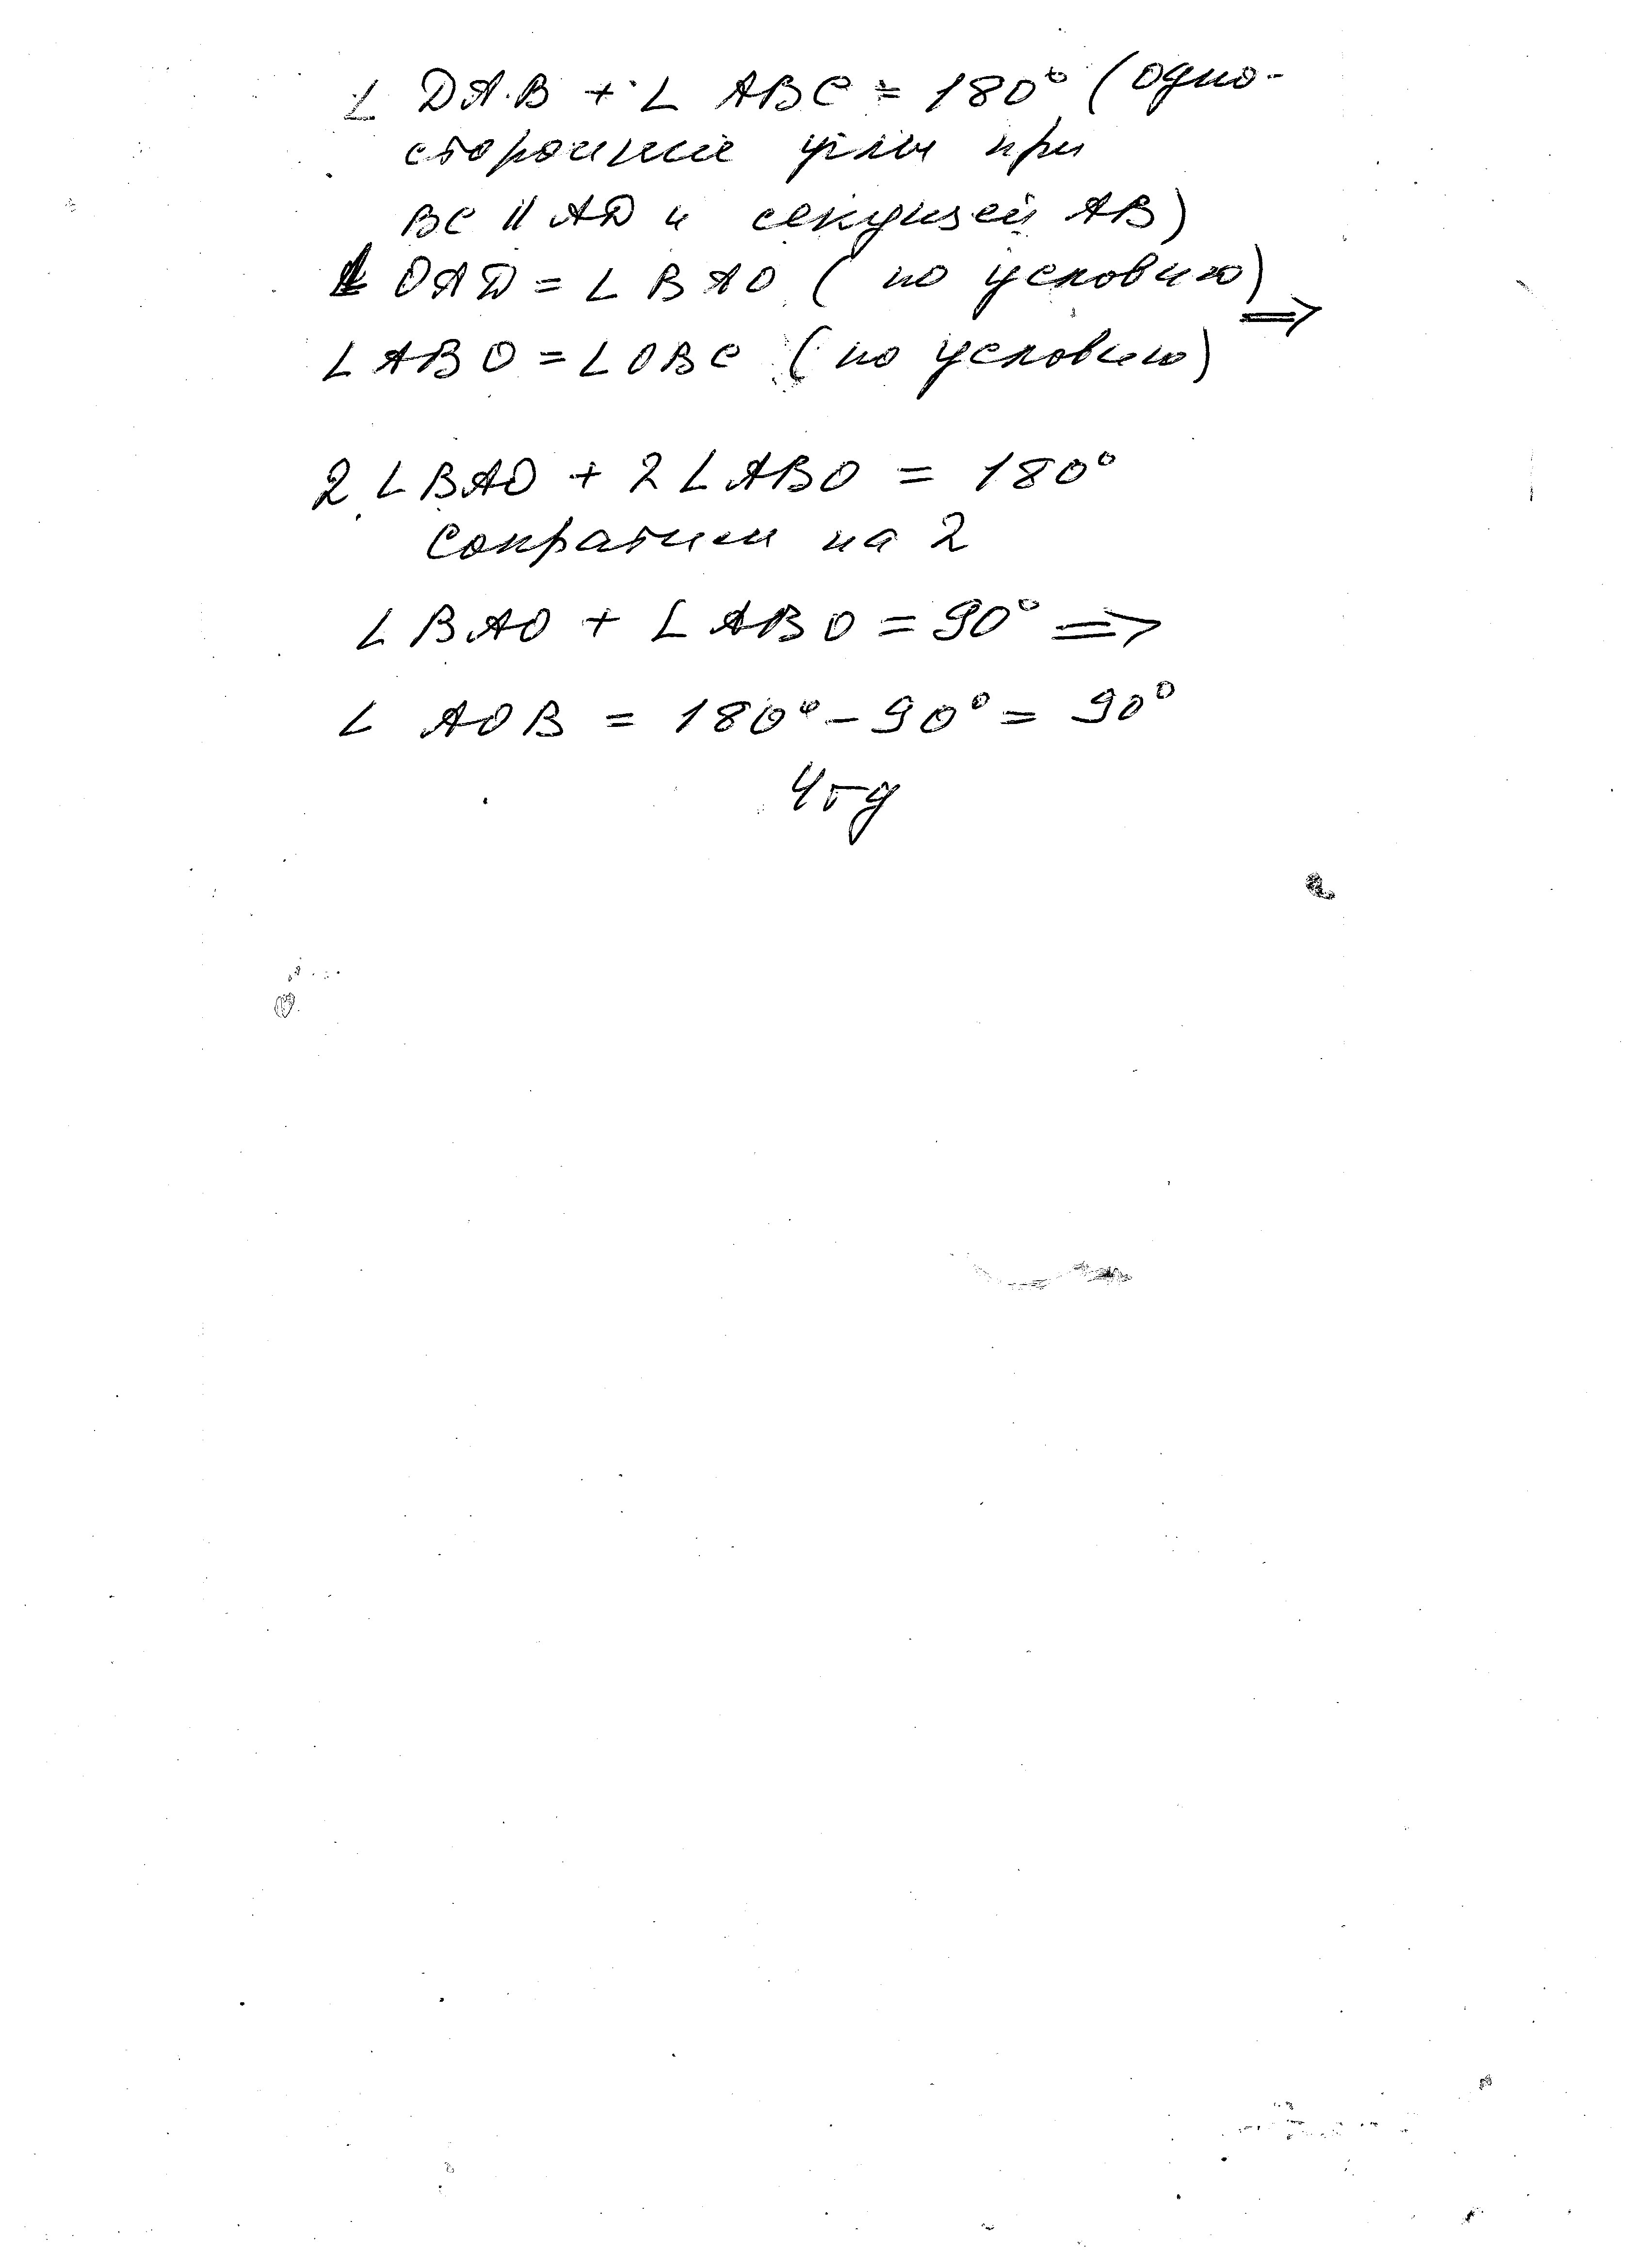 ∠ DAB + ∠ ABC = 180° (одно-
сторонние углы при
BC || AD и секущей AB)
∠ OAD = ∠ BAO (по условию)
⇒
∠ ABO = ∠ OBC (по условию)
2 ∠ BAO + 2 ∠ ABO = 180°
Сократим на 2
∠ BAO + ∠ ABO = 90° ⇒
∠ AOB = 180° - 90° = 90°
Чтд